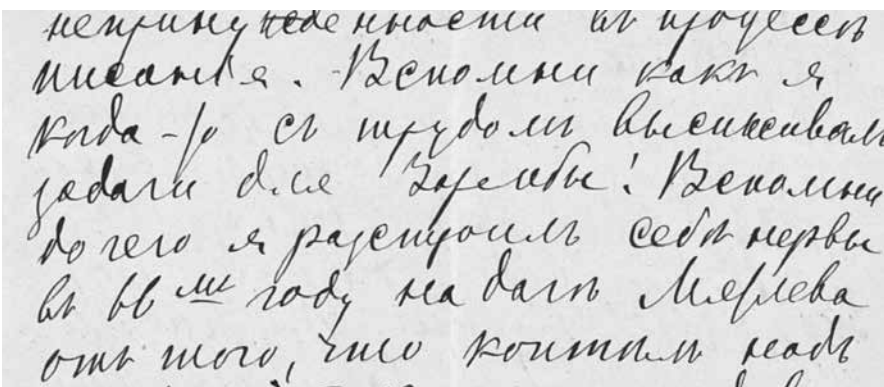 непринужденности въ процессѣ
писанья. Вспомни какъ я
когда-то съ трудомъ высиживалъ
задачи для Зарембы! Вспомни
до чего я разстроилъ себѣ нервы
въ 66 ​мъ году на дачѣ Мятлева
отъ того, что коптѣлъ надъ